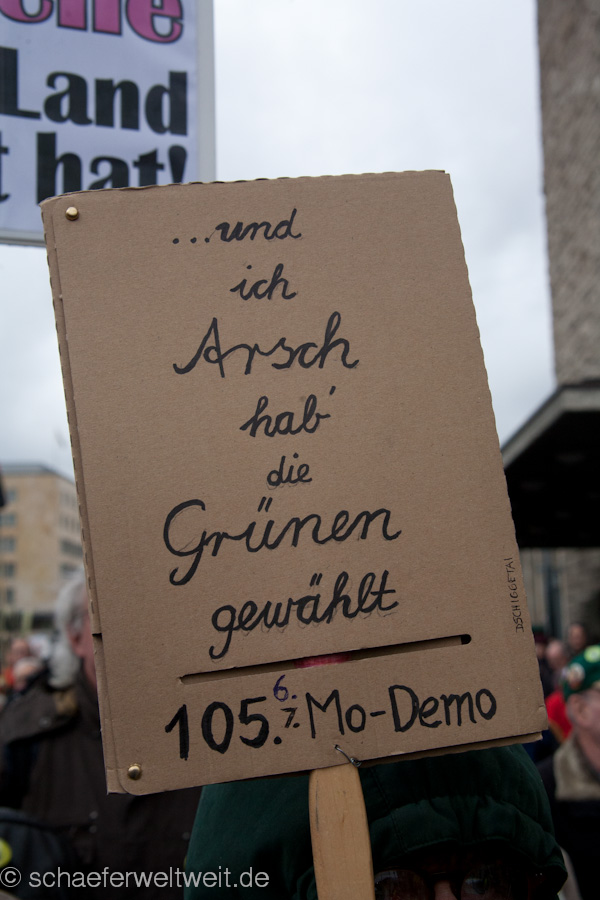 Land
hat!
...und
ich
Arsch
hab'
die
Grünen
gewählt
DSCHIGGETAI
105. 6. 7. Mo-Demo
© schaeferweltweit.de